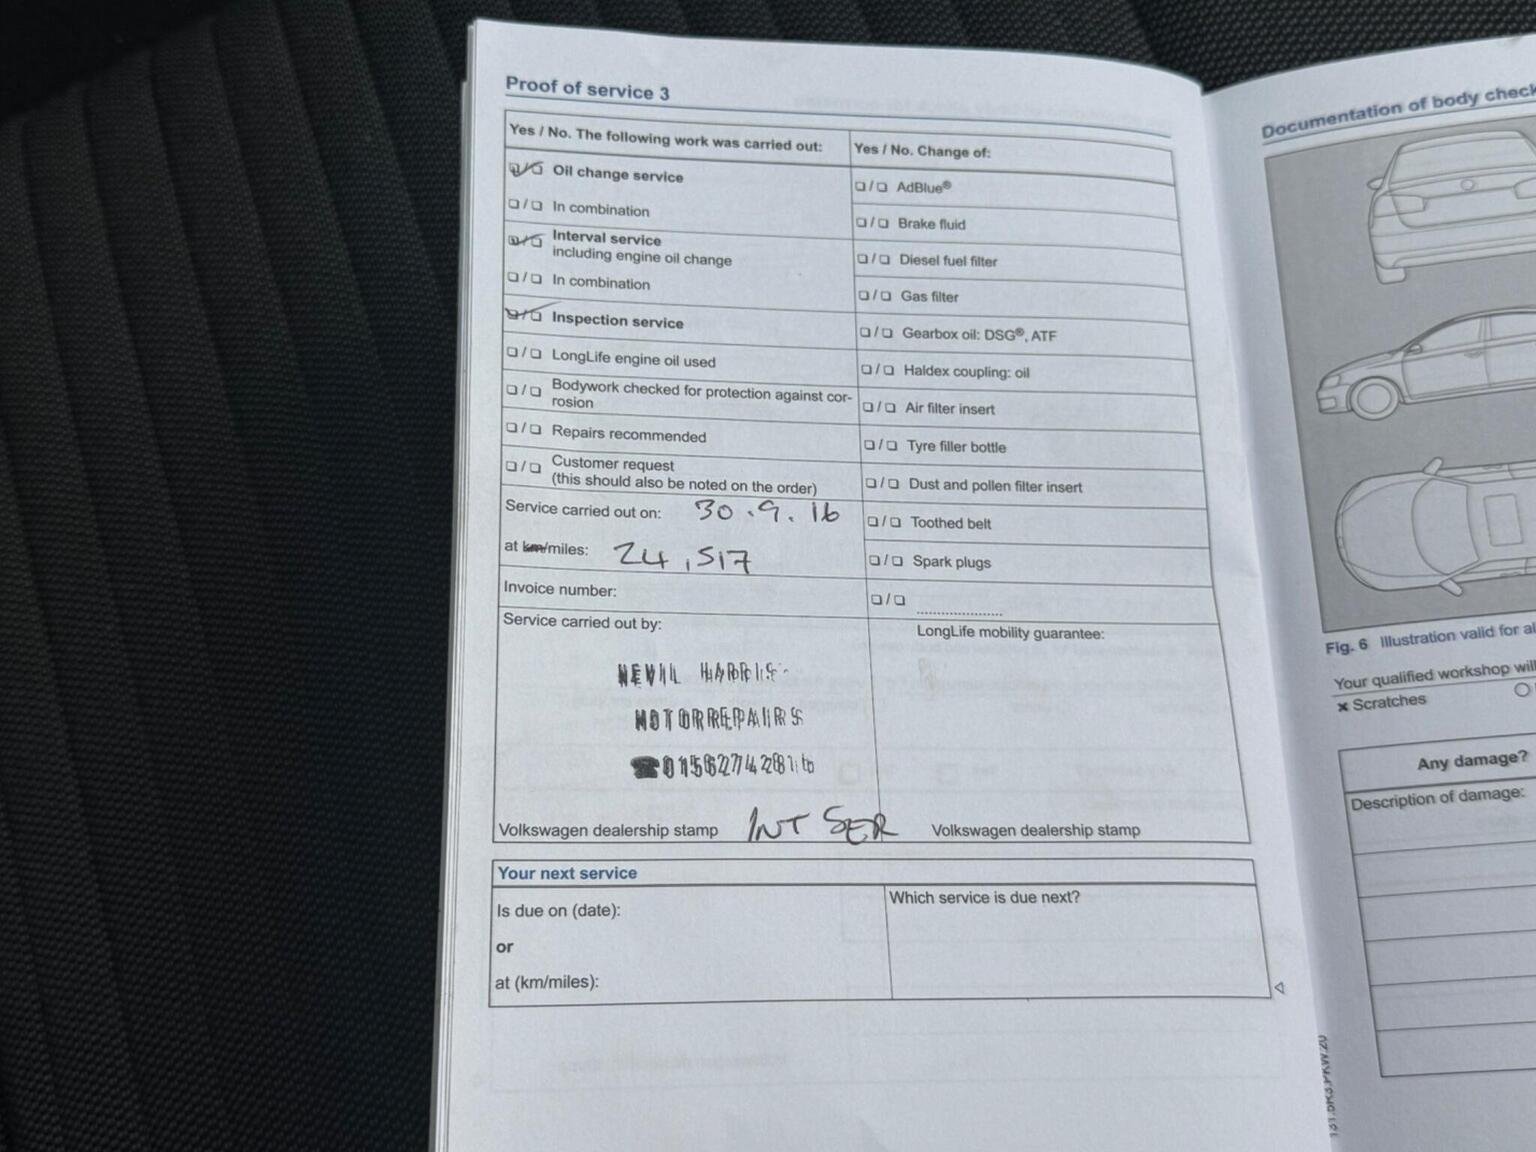 Proof of service 3
Yes / No. The following work was carried out:
Oil change service
In combination
Interval service
including engine oil change
In combination
Inspection service
LongLife engine oil used
Bodywork checked for protection against cor-
rosion
Repairs recommended
Customer request
(this should also be noted on the order)
Service carried out on: 30.9.16
at km/miles: 24,517
Invoice number:
Service carried out by:
NEVIL HARRIS
MOTOR REPAIRS
Volkswagen dealership stamp INT SER
Yes / No. Change of:
AdBlue®
Brake fluid
Diesel fuel filter
Gas filter
Gearbox oil: DSG®, ATF
Haldex coupling: oil
Air filter insert
Tyre filler bottle
Dust and pollen filter insert
Toothed belt
Spark plugs
LongLife mobility guarantee:
Volkswagen dealership stamp
Your next service
Is due on (date):
or
at (km/miles):
Which service is due next?
Documentation of body check
Fig. 6 Illustration valid for
Your qualified workshop will
Scratches
Any damage?
Description of damage: